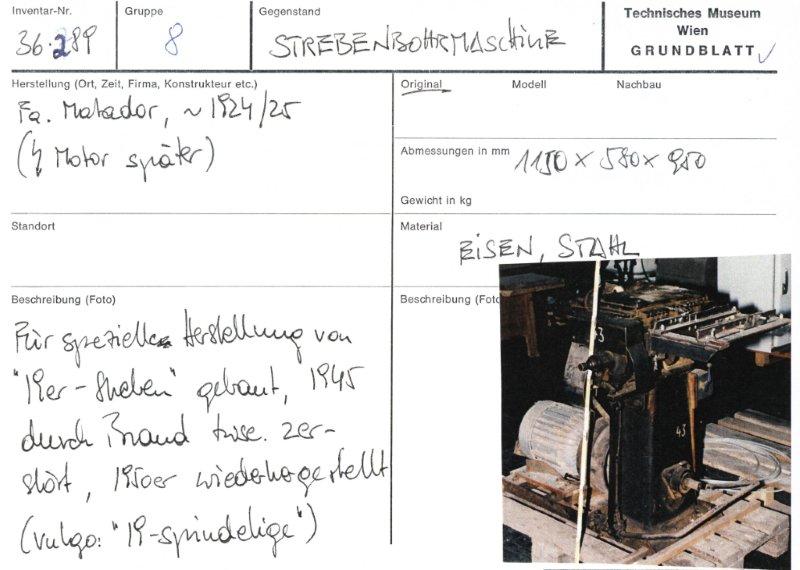 Inventar-Nr.
36.289
Gruppe
8
Gegenstand
STREBENBOHRMASCHINE
Technisches Museum
Wien
GRUNDBLATT
Herstellung (Ort, Zeit, Firma, Konstrukteur etc.)
Fa. Matador, ~ 1924/25
(ϟ Motor später)
Original
Modell
Nachbau
Abmessungen in mm 1150 x 580 x 950
Gewicht in kg
Standort
Material
EISEN, STAHL
Beschreibung (Foto)
Für spezielle Herstellung von
"19er-Streben" gebaut, 1945
durch Brand twse. zer-
stört, 1950er wiederhergestellt
(vulgo: "19-spindelige")
Beschreibung (Foto
3
43